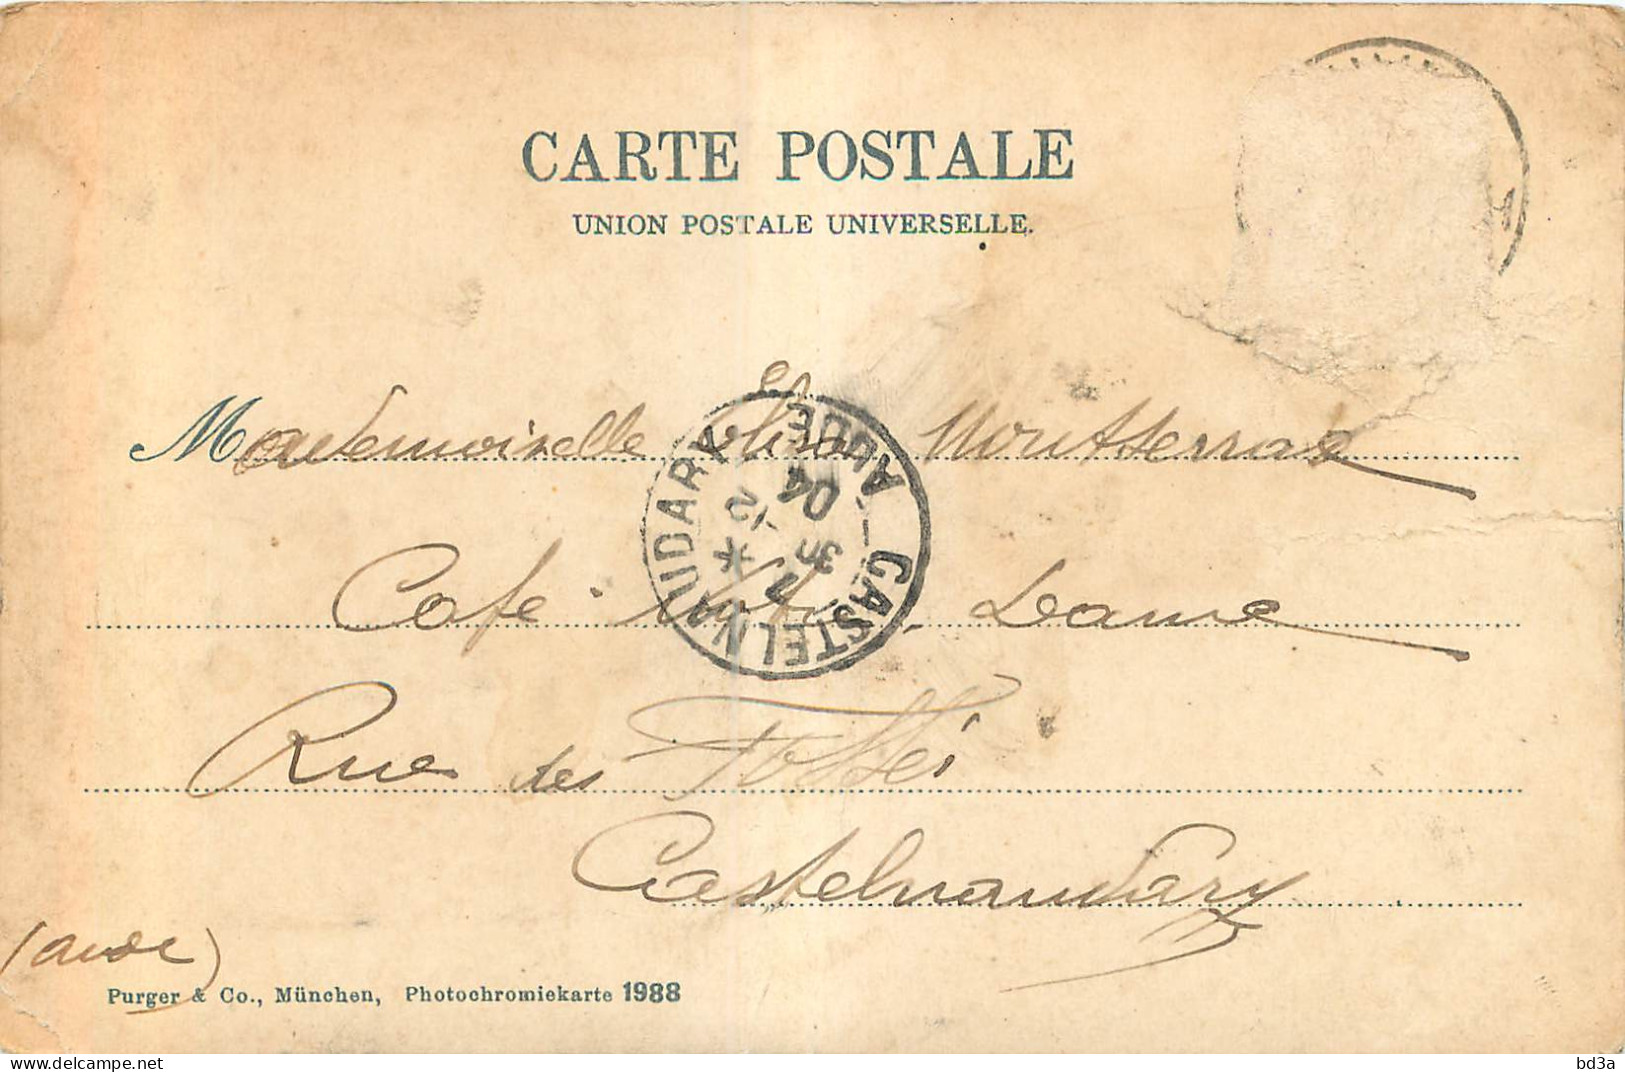 CARTE POSTALE
UNION POSTALE UNIVERSELLE.
Mademoiselle Elisa Montserrat
Café Notre Dame
Rue des Fossés
Castelnaudary
(Aude)
CASTELNAUDARY
AUDE
7
30
12
04
Purger & Co., München, Photochromiekarte 1988
delcampe.net
bd3a